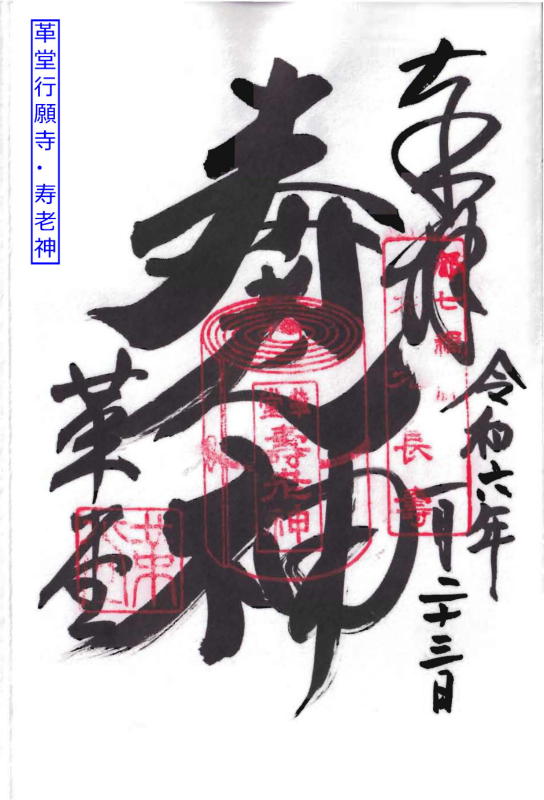 革堂行願寺・寿老神
奉拝
令和六年
一月二十三日
寿老神
革堂
長寿
革堂
壽老神